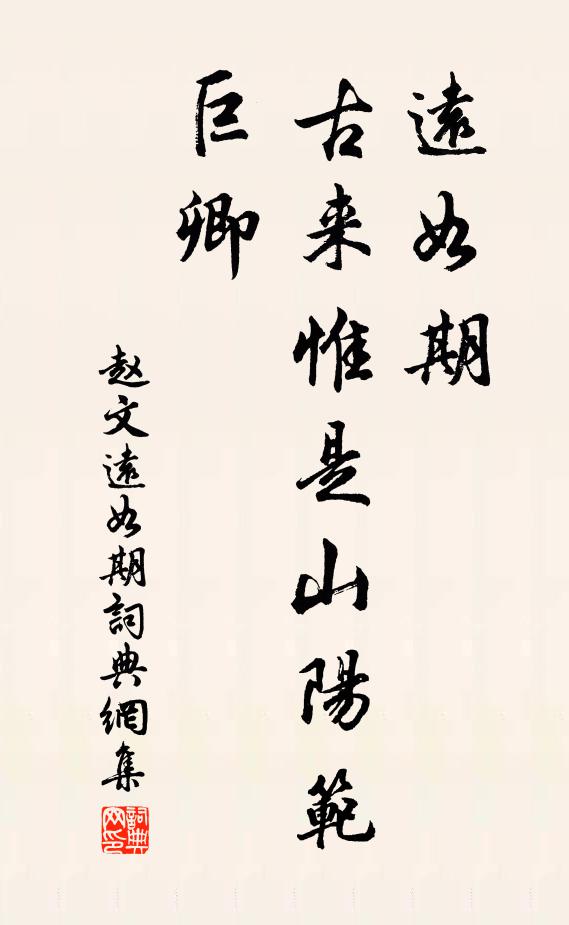 遠如期
古来惟是山陽範
巨卿
赵文遠如期詞典網集
詞典网印